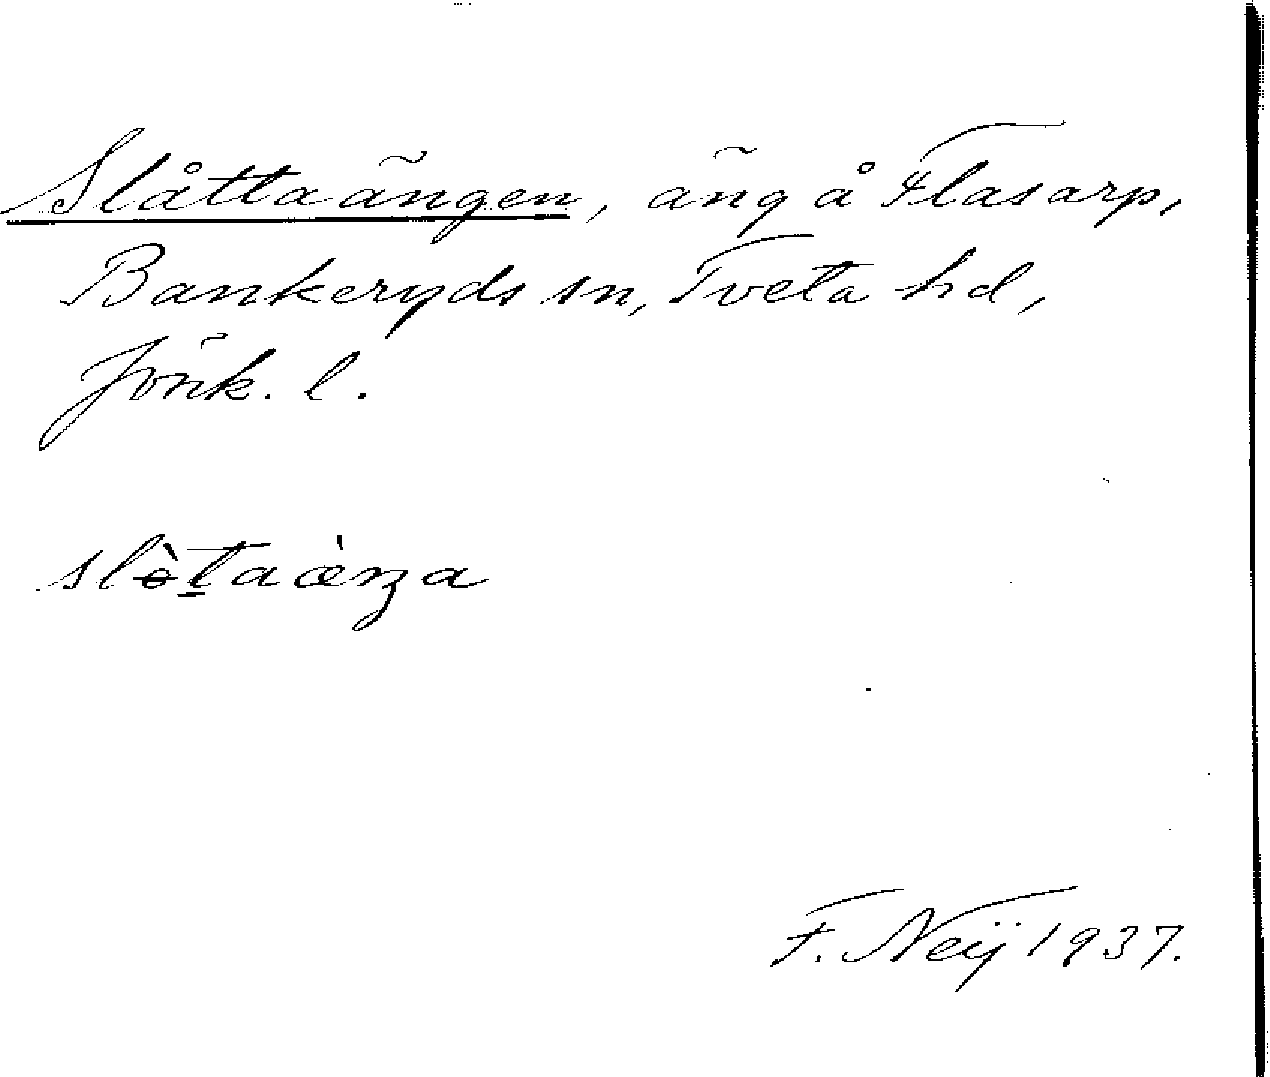 Slåttaängen, äng å Flasarp,
Bankeryds sn, Tveta hd,
Jönk. l.
slòt̲aæ̀ŋa
F. Neij 1937.